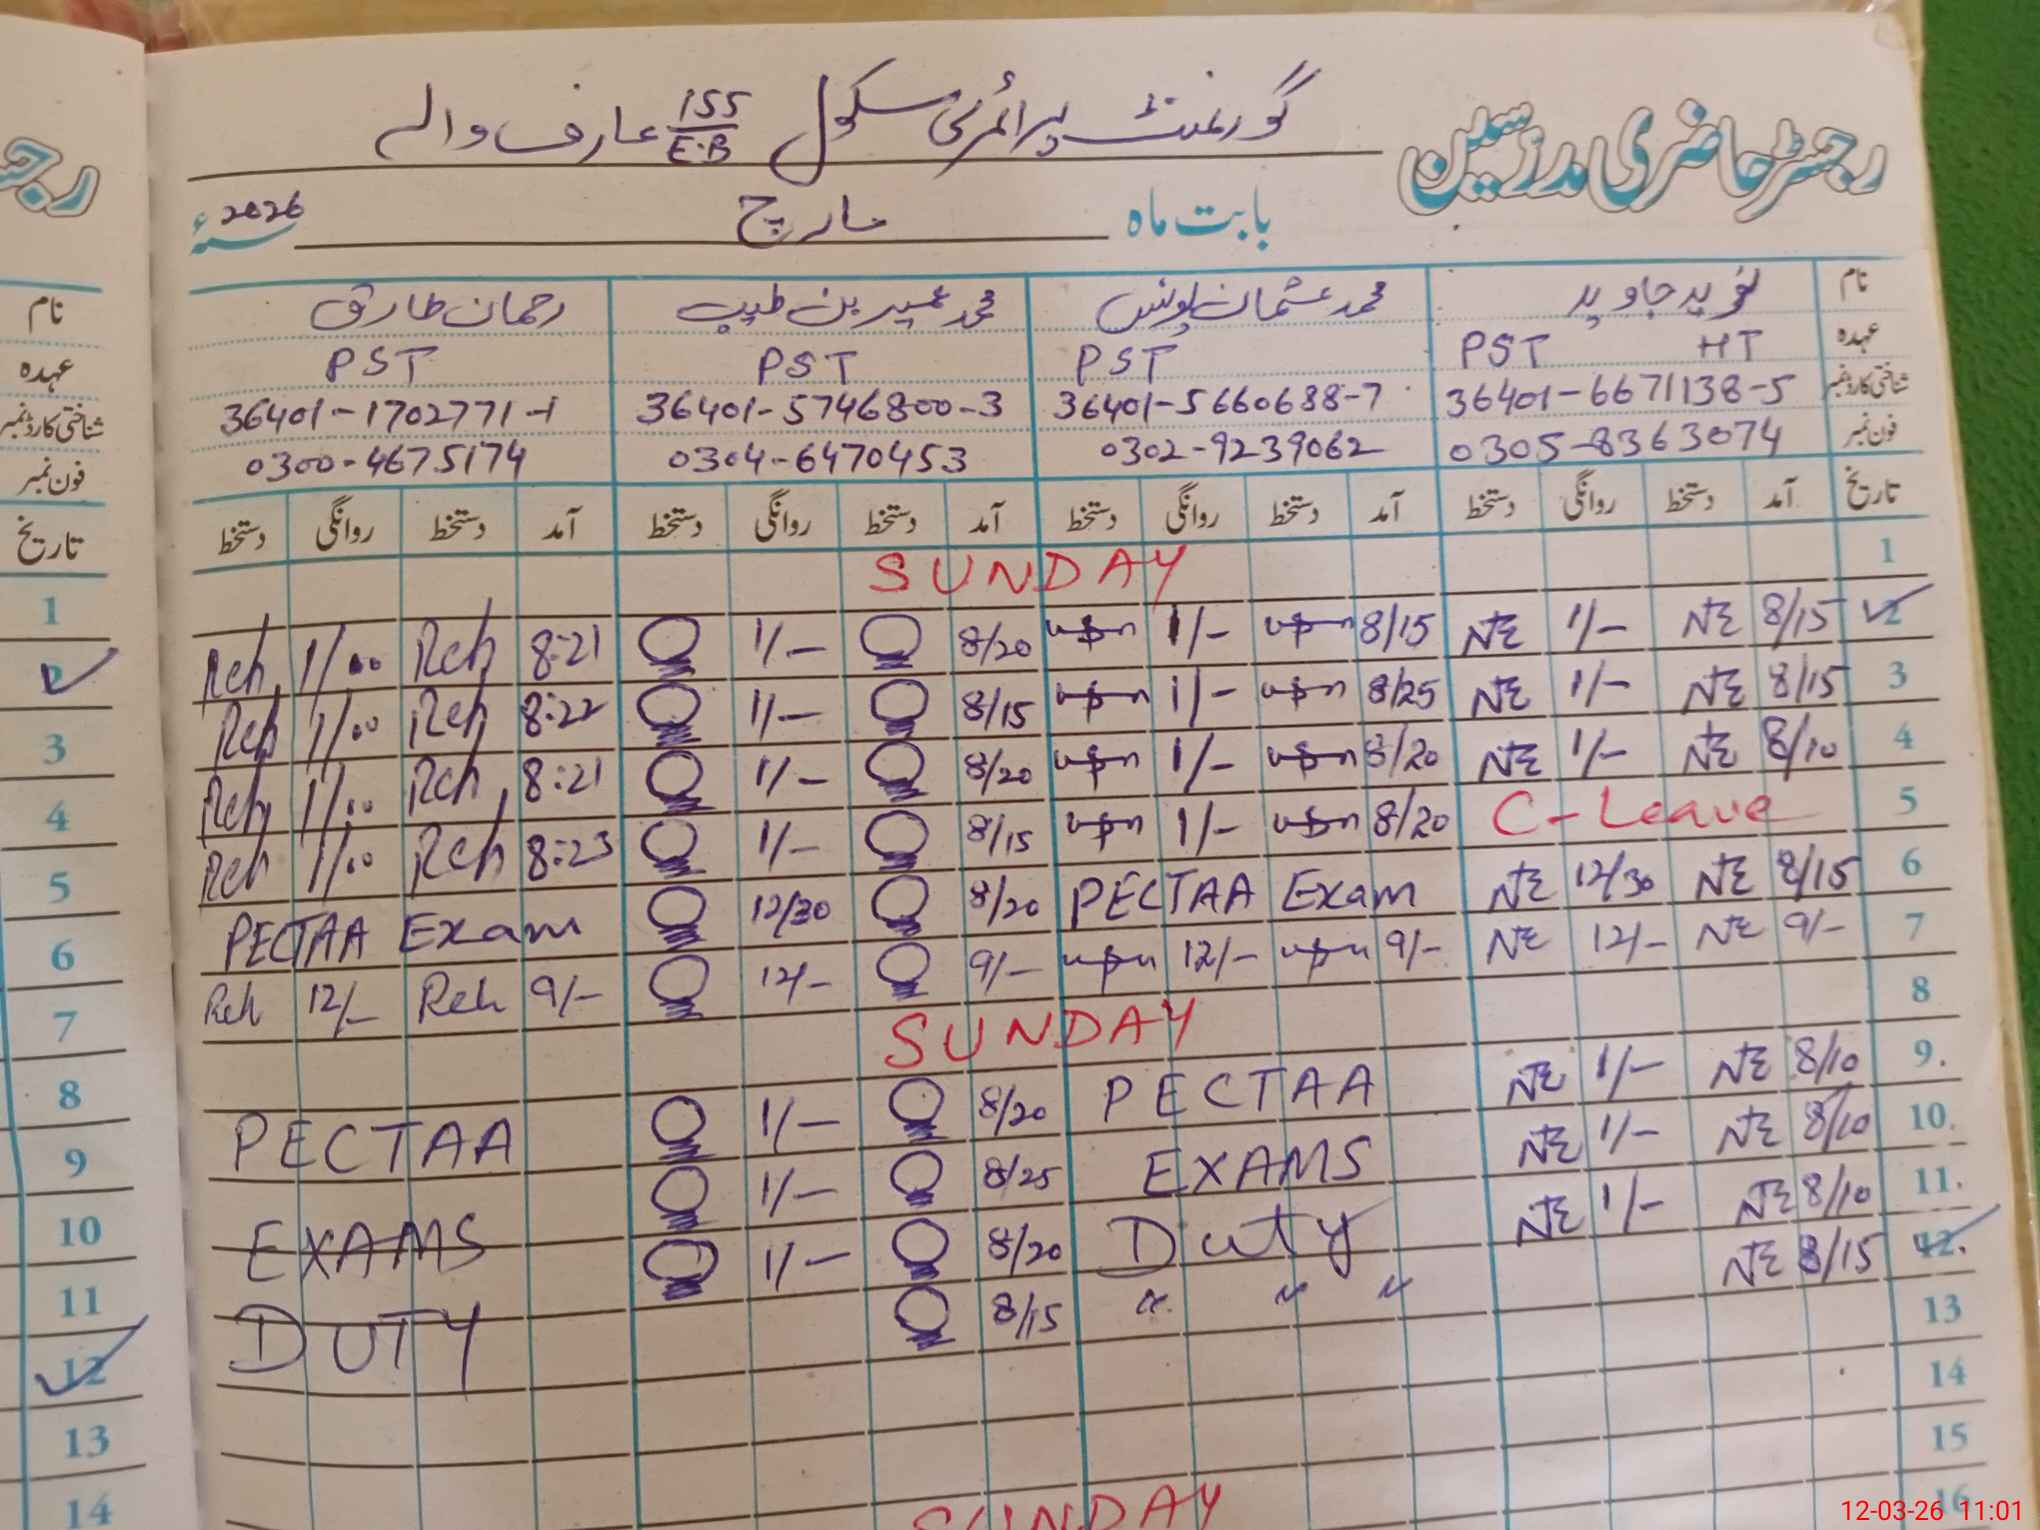 گورنمنٹ پرائمری سکول 155/E.B عارف والہ
رجسٹر حاضری مدرسین
بابت ماہ مارچ 2026 سنہء
نام نوید جاوید محمد عثمان یونس محمد عمیر بن طیب رحمان طارق
عہدہ PST HT PST PST PST
شناختی کارڈ نمبر 36401-6671138-5 36401-5660688-7 36401-5746800-3 36401-1702771-1
فون نمبر 0305-8363074 0302-9239062 0304-6470453 0300-4675174
تاریخ آمد دستخط روانگی دستخط آمد دستخط روانگی دستخط آمد دستخط روانگی دستخط آمد دستخط روانگی دستخط
1 SUNDAY
2 8/15 NE 1/- NE 8/15 1/- 8/20 1/- 8:21 Reh 1/00 Reh
3 8/15 NE 1/- NE 8/25 1/- 8/15 1/- 8:22 Reh 1/00 Reh
4 8/10 NE 1/- NE 8/20 1/- 8/20 1/- 8:21 Reh 1/00 Reh
5 C-Leave 8/20 1/- 8/15 1/- 8:23 Reh 1/00 Reh
6 8/15 NE 12/30 NE PECTAA Exam 8/20 12/30 PECTAA Exam
7 9/- NE 12/- NE 9/- 12/- 9/- 12/- 9/- Reh 12/- Reh
8 SUNDAY
9. 8/10 NE 1/- NE PECTAA 8/20 1/- PECTAA
10. 8/10 NE 1/- NE EXAMS 8/25 1/- EXAMS
11. 8/10 NE 1/- NE Duty 8/20 1/- DUTY
12. 8/15 NE " " " 8/15
13
14
15
16 SUNDAY
رجس
نام
عہدہ
شناختی کارڈ نمبر
فون نمبر
تاریخ
1
2
3
4
5
6
7
8
9
10
11
12
13
14
12-03-26 11:01